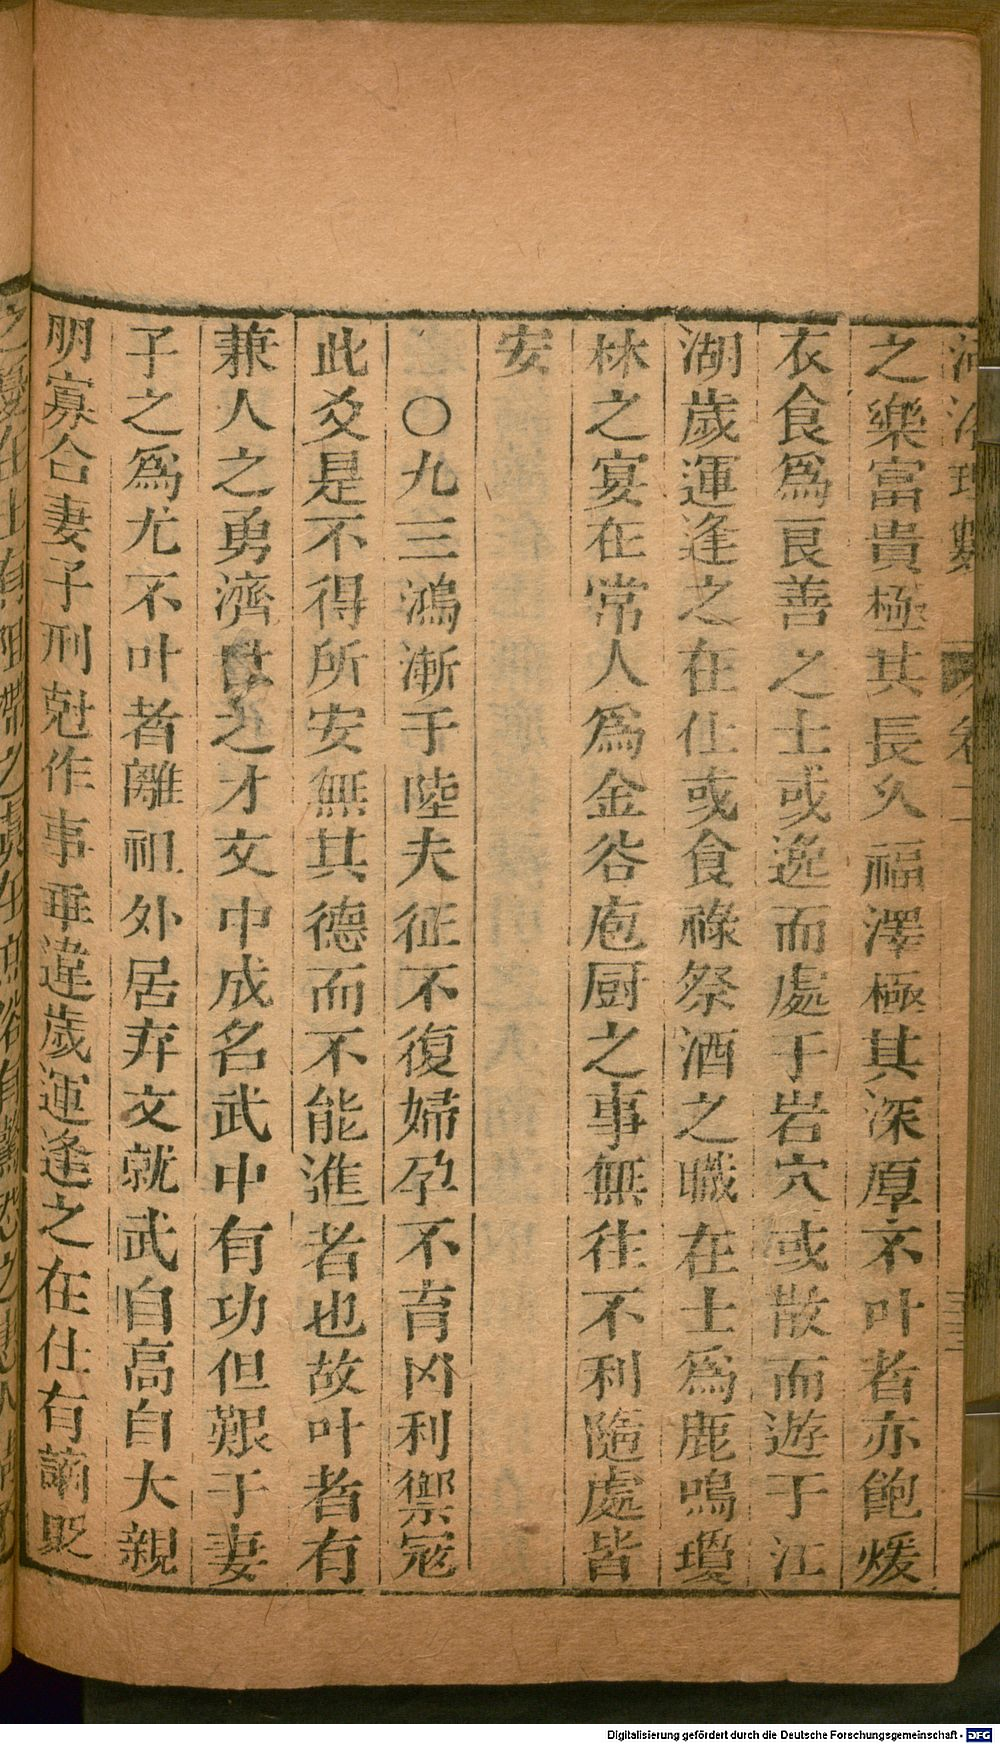 河洛理數
卷二
之樂富貴極其長久福澤極其深厚不叶者亦飽煖
衣食爲良善之士或逸而處于岩穴或散而遊于江
湖歲運逢之在仕或食祿祭酒之職在士爲鹿鳴瓊
林之宴在常人爲金谷庖厨之事無往不利隨處皆
安
○九三鴻漸于陸夫征不復婦孕不育凶利禦寇
此爻是不得所安無其德而不能進者也故叶者有
兼人之勇濟世之才文中成名武中有功但艱于妻
子之爲尤不叶者離祖外居弃文就武自高自大親
朋寡合妻子刑尅作事乖違歲運逢之在仕有謫貶
Digitalisierung gefördert durch die Deutsche Forschungsgemeinschaft - DFG